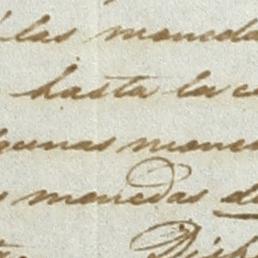 las moneda
hasta la c
gunas mone
s monedas de
Dich